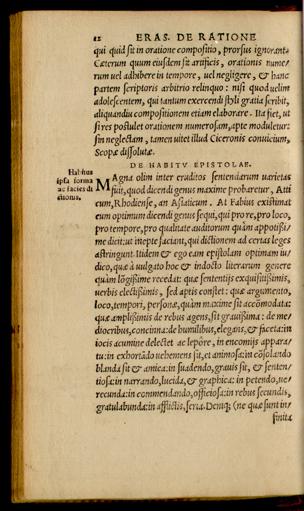 12 ERAS. DE RATIONE
qui quid sit in oratione compositio, prorsus ignorant.
Cæterum quum eiusdem sit artificis, orationis nume/
rum uel adhibere in tempore, uel negligere, & hanc
partem scriptoris arbitrio relinquo: nisi quod uelim
adolescentem, qui tantum exercendi styli gratia scribit,
aliquandiu compositionem etiam elaborare. Ita fiet, ut
si res postulet orationem numerosam, apte moduletur:
sin neglectam, tamen uitet illud Ciceronis conuicium,
Scopæ dissolutæ.
DE HABITV EPISTOLAE.
Habitus
ipsa forma
ac facies di
ationis.
MAgna olim inter eruditos sententiarum uarietas
fuit, quod dicendi genus maxime probaretur, Atti
cum, Rhodiense, an Asiaticum. At Fabius existimat
eum optimum dicendi genus sequi, qui pro re, pro loco,
pro tempore, pro qualitate auditorum quàm appositißi/
me dicit: ut inepte faciant, qui dictionem ad certas leges
astringunt. Itidem & ego eam epistolam optimam iu/
dico, quæ à uulgato hoc & indocto literarum genere
quàm lõgißime recedat: quæ sententijs exquisitißimis,
uerbis electißimis, sed aptis constet: quæ argumento,
loco, tempori, personæ, quàm maxime sit accõmodata:
quæ amplißimis de rebus agens, sit grauißima: de me/
diocribus, concinna: de humilibus, elegans, & faceta: in
iocis acumine delectet ac lepôre, in encomijs appara/
tu: in exhortãdo uehemens sit, et animosa: in cõsolando
blanda sit & amica: in suadendo, grauis sit, & senten/
tiosa: in narrando, lucida, & graphica: in petendo, ue/
recunda: in commendando, officiosa: in rebus secundis,
gratulabunda: in afflictis, seria. Deniq; (ne quæ sunt in/
finita